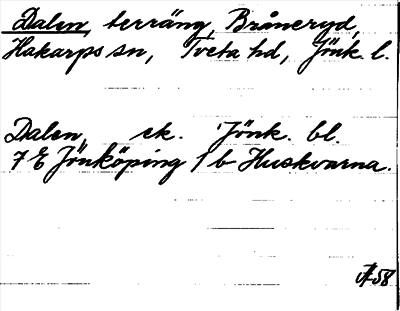 Dalen, terräng, Bråneryd,
Hakarps sn, Tveta hd, Jönk. l.
Dalen, ek. Jönk. bl.
7 E Jönköping 1 b Huskvarna.
58